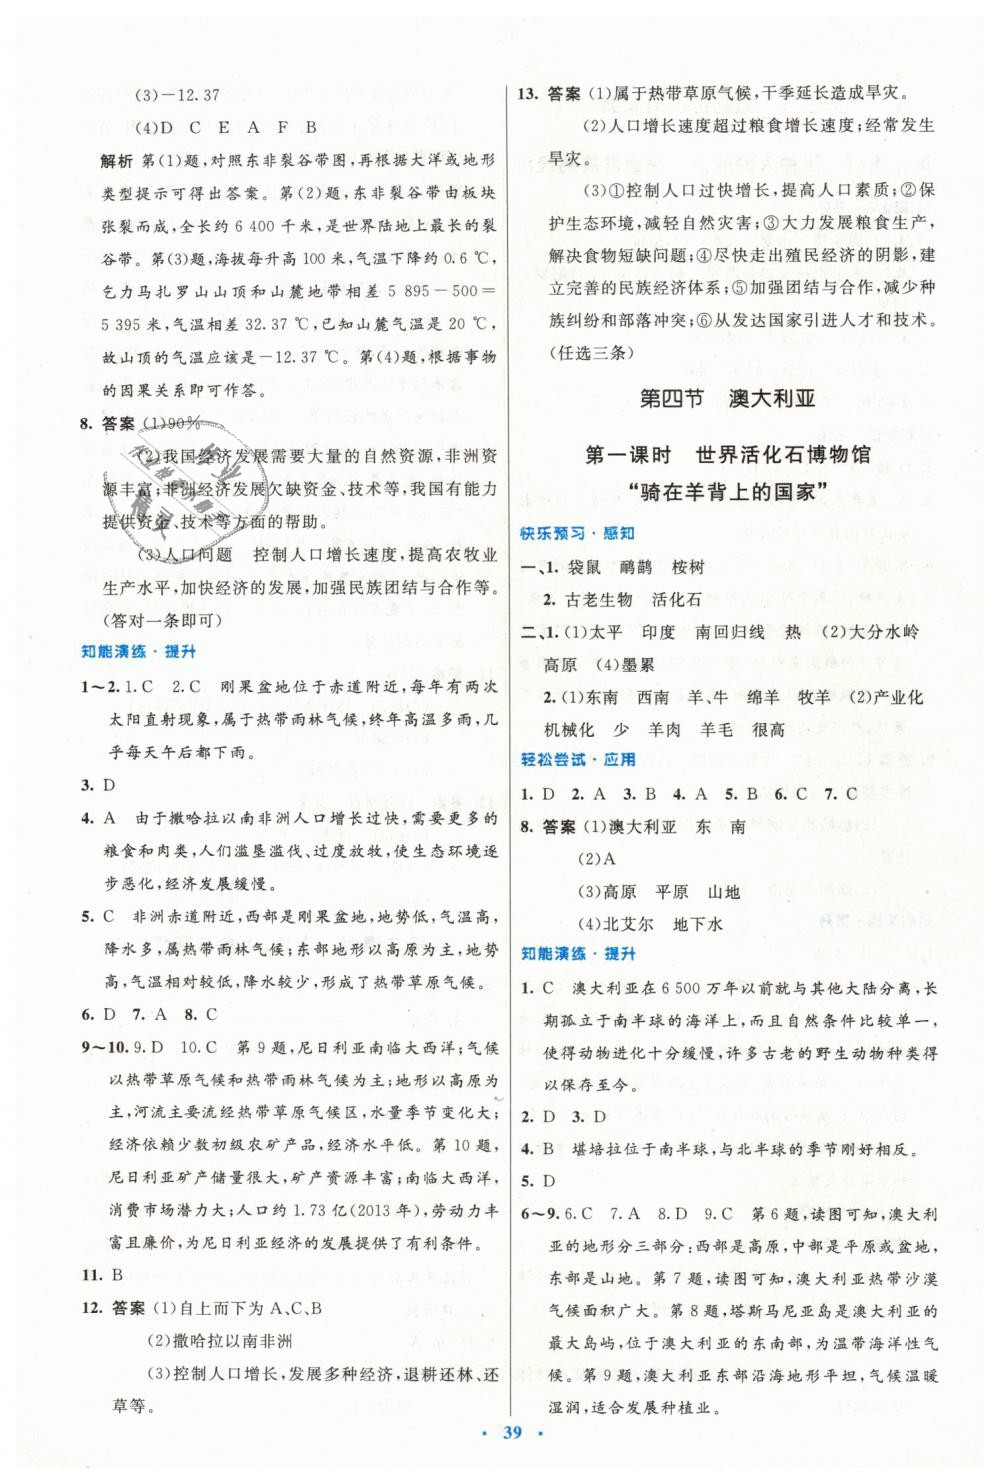 (3)－12.37
(4)D　C　E　A　F　B
解析　第(1)题,对照东非裂谷带图,再根据大洋或地形
类型提示可得出答案。第(2)题,东非裂谷带由板块
张裂而成,全长约 6 400 千米,是世界陆地上最长的裂
谷带。第(3)题,海拔每升高 100 米,气温下降约 0.6 ℃,
乞力马扎罗山山顶和山麓地带相差 5 895－500＝
5 395 米,气温相差 32.37 ℃,已知山麓气温是 20 ℃,
故山顶的气温应该是－12.37 ℃。第(4)题,根据事物
的因果关系即可作答。
8. 答案　(1)90%
(2)我国经济发展需要大量的自然资源,非洲资
源丰富;非洲经济发展欠缺资金、技术等,我国有能力
提供资金、技术等方面的帮助。
(3)人口问题　控制人口增长速度,提高农牧业
生产水平,加快经济的发展,加强民族团结与合作等。
(答对一条即可)
知能演练·提升
1～2. 1. C　2. C　刚果盆地位于赤道附近,每年有两次
太阳直射现象,属于热带雨林气候,终年高温多雨,几
乎每天午后都下雨。
3. D
4. A　由于撒哈拉以南非洲人口增长过快,需要更多的
粮食和肉类,人们滥垦滥伐、过度放牧,使生态环境逐
步恶化,经济发展缓慢。
5. C　非洲赤道附近,西部是刚果盆地,地势低,气温高,
降水多,属热带雨林气候;东部地形以高原为主,地势
高,气温较低,降水较少,形成了热带草原气候。
6. D　7. A　8. C
9～10. 9. D　10. C　第 9 题,尼日利亚南临大西洋;气候
以热带草原气候和热带雨林气候为主;地形以高原为
主,河流主要流经热带草原气候区,水量季节变化大;
经济依赖少数初级农矿产品,经济水平低。第 10 题,
尼日利亚矿产储量很大,矿产资源丰富;南临大西洋,
消费市场潜力大;人口约 1.73 亿(2013 年),劳动力丰
富且廉价,为尼日利亚经济的发展提供了有利条件。
11. B
12. 答案　(1)自上而下为 A、C、B
(2)撒哈拉以南非洲
(3)控制人口增长,发展多种经济,退耕还林、还
草等。
13. 答案　(1)属于热带草原气候,干季延长造成旱灾。
(2)人口增长速度超过粮食增长速度;经常发生
旱灾。
(3)①控制人口过快增长,提高人口素质;②保
护生态环境,减轻自然灾害;③大力发展粮食生产,
解决食物短缺问题;④尽快走出殖民经济的阴影,建
立完善的民族经济体系;⑤加强团结与合作,减少种
族纠纷和部落冲突;⑥从发达国家引进人才和技术。
(任选三条)
第四节　澳大利亚
第一课时　世界活化石博物馆
“骑在羊背上的国家”
快乐预习·感知
一、1. 袋鼠　鸸鹋　桉树
2. 古老生物　活化石
二、1. (1)太平　印度　南回归线　热　(2)大分水岭
高原　(4)墨累
2. (1)东南　西南　羊、牛　绵羊　牧羊　(2)产业化
机械化　少　羊肉　羊毛　很高
轻松尝试·应用
1. D　2. A　3. B　4. A　5. B　6. C　7. C
8. 答案　(1)澳大利亚　东　南
(2)A
(3)高原　平原　山地
(4)北艾尔　地下水
知能演练·提升
1. C　澳大利亚在 6 500 万年以前就与其他大陆分离,长
期孤立于南半球的海洋上,而且自然条件比较单一,
使得动物进化十分缓慢,许多古老的野生动物种类得
以保存至今。
2. D　3. D
4. B　堪培拉位于南半球,与北半球的季节刚好相反。
5. D
6～9. 6. C　7. A　8. D　9. C　第 6 题,读图可知,澳大利
亚的地形分三部分:西部是高原,中部是平原或盆地,
东部是山地。第 7 题,读图可知,澳大利亚热带沙漠
气候面积广大。第 8 题,塔斯马尼亚岛是澳大利亚的
最大岛屿,位于澳大利亚的东南部,为温带海洋性气
候。第 9 题,澳大利亚东部沿海地形平坦,气候温暖
湿润,适合发展种植业。
· 39 ·